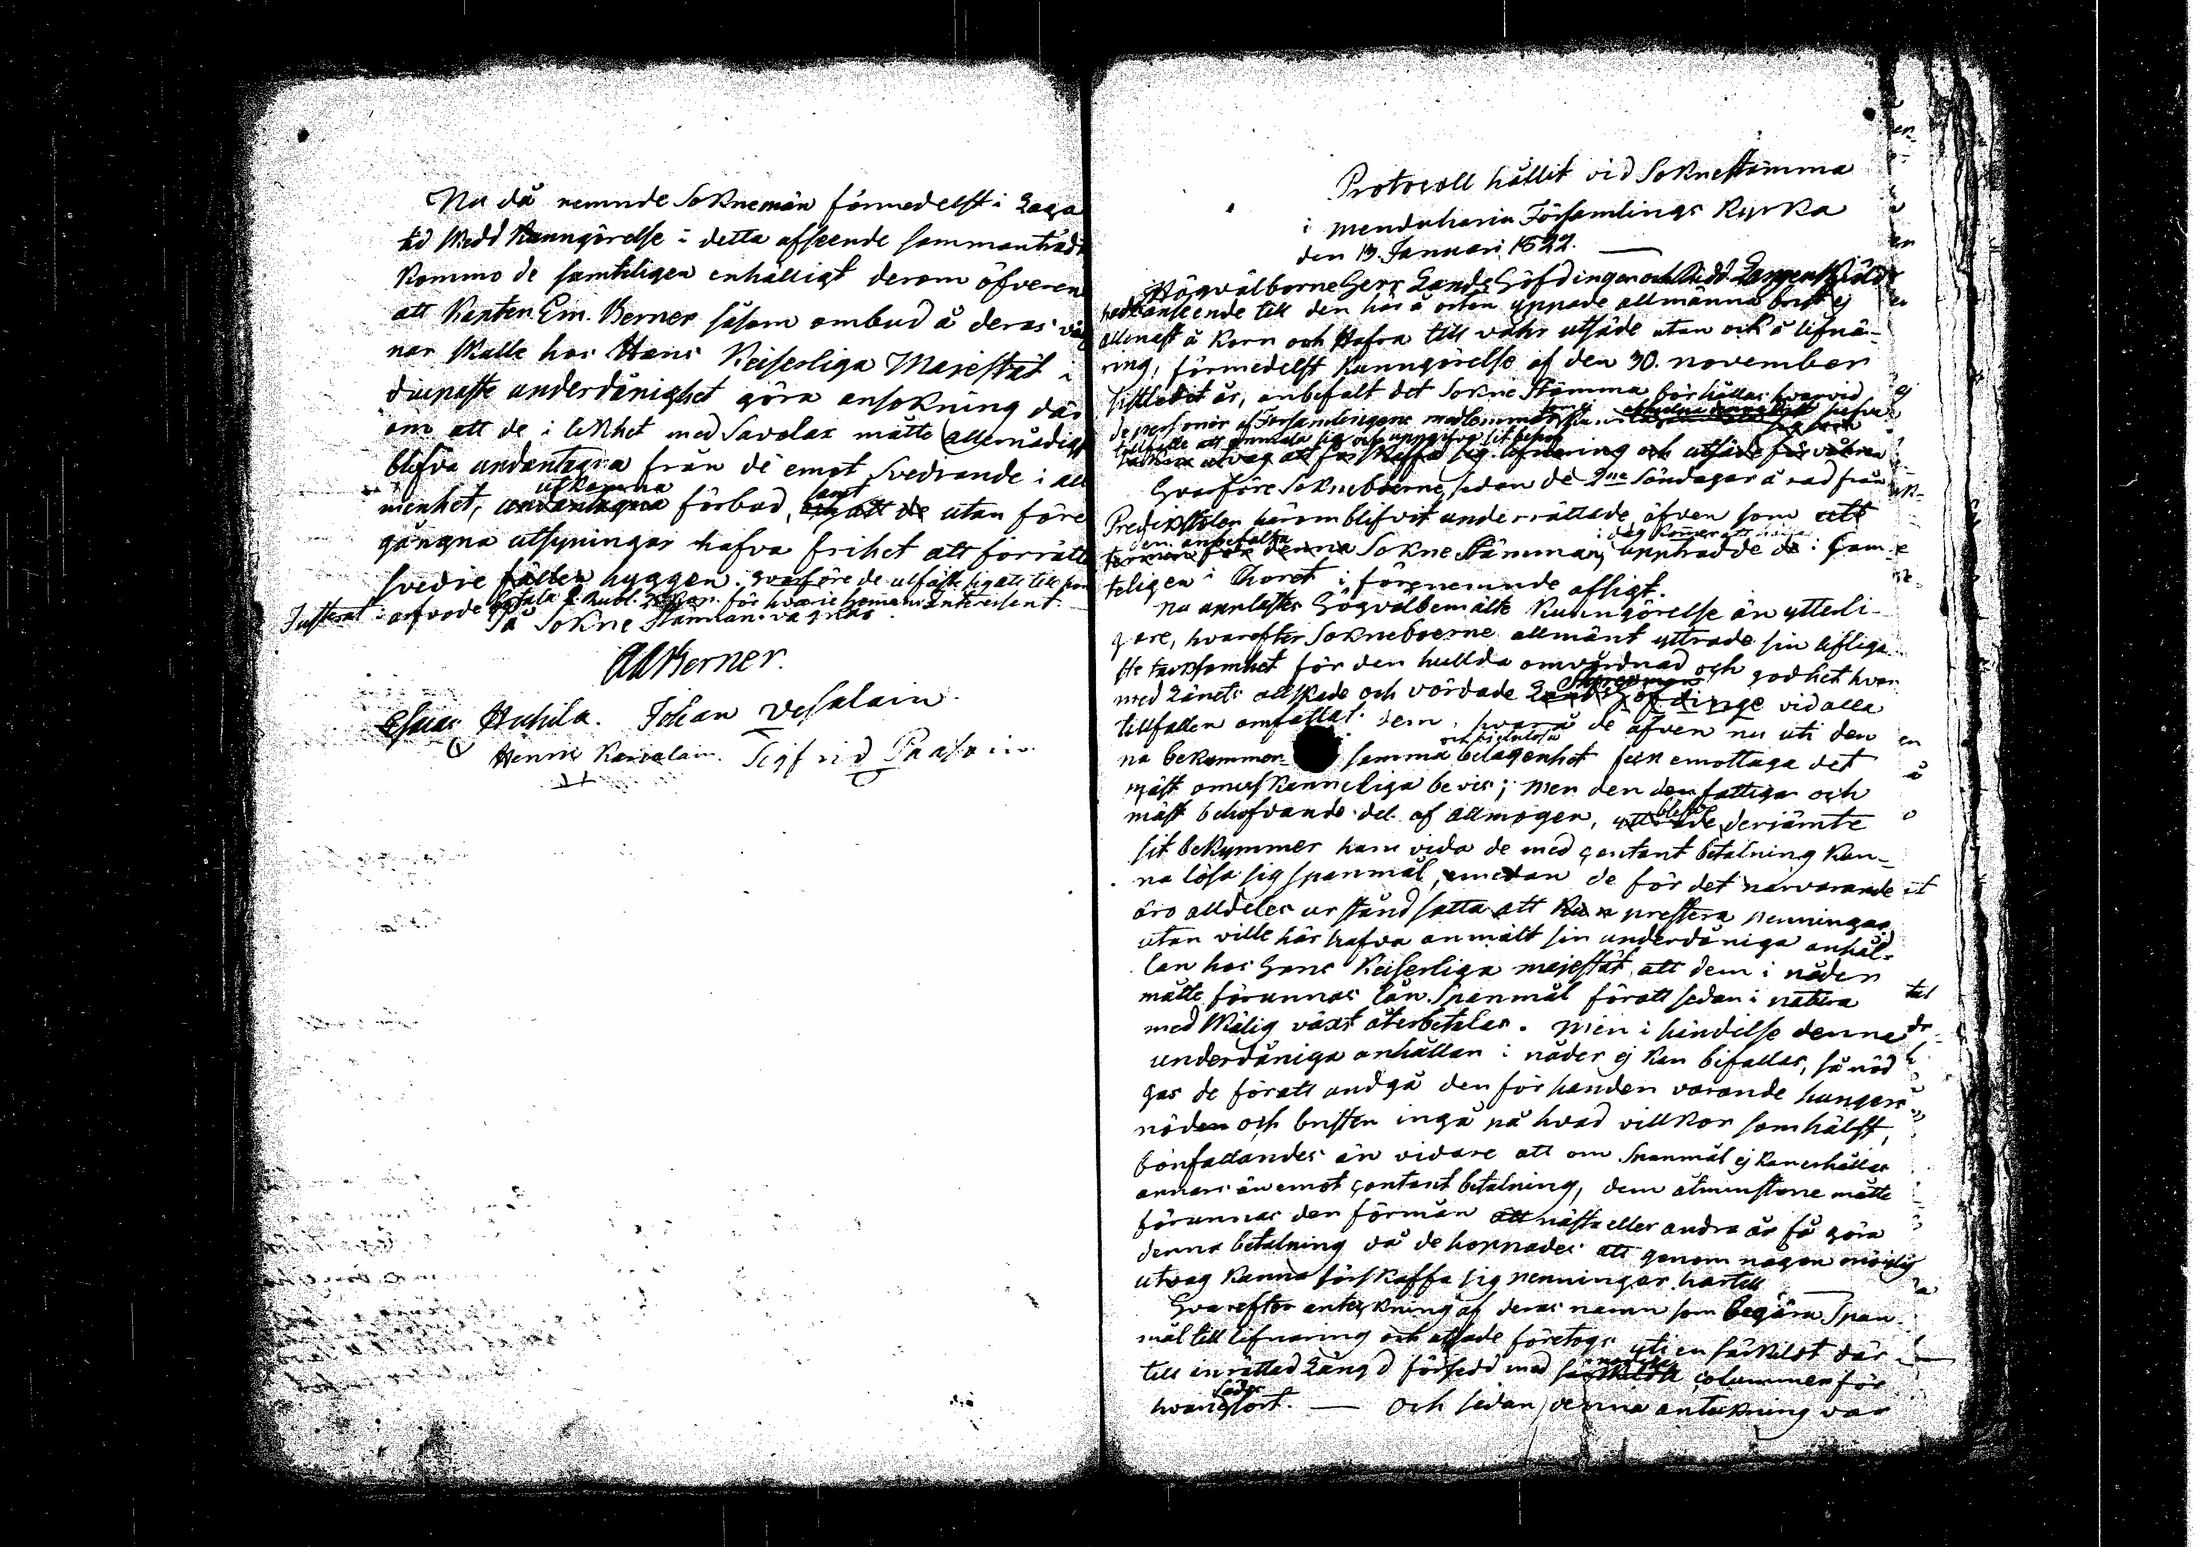 Nu då nemnde Soknemän förmedelst i Laga
tid skedd Kungörelse i detta afseende sammanträdt
kommo de samteligen enhälligt derom öfverens
att Kapten Em. Berner såsom ombud å deras väg
nar skulle hos Hans Keiserliga Majestät i
diupaste underdånighet göra ansökning där
om att de i likhet med Savolax måtte allernådigst
blefva undantagna från de emot svedjande i all
utkomna
menhet, undantagna förbud, samt att de utan före
gångna utsyningar hafva frihet att förrätta
svedje fällen hyggen. hvarföre de utfäste sig att till
arfvode betala 2 Rubl. för hvarje hemmans Interessent.
Justerat På Sokne Stämman. vagnas
Ad Berner.
Esaias Huhila. Johan Vesalain
Henric Karvalain. Sigfrid Paasoin
Protocoll hållit vid Soknestämma
i Mendüharju Församlings Kyrka
den 13. Januari 1822.
Högvälborne Herr Lands Höfdingen och Ridd. Langenskiöld
hade i anseende till den här å orten yppade allmänna brist ej
allenast å Korn och Hafra till vahr utsäde utan ock å lifnä-
ring, förmedelst Kungörelse af den 30. november
sistledit år, anbefalt det Sokne Stämma bör hållas hvarvid
de personer af Församlingens medlemmar som hafva
tillfälle att anmäla sig och uppgifva sit behof
utväg att förskaffa sig lifnäring och utsäde för våhren
Hvarföre Sokneboerne, sedan de 2ne Söndagar å rad från
Predikstolen härom blifvit underrättade äfven som att
den anbefalta i dag kommer att hållas
termin för denna Sokne Stämman, uppträdde de i Sam-
teligen i Choret i förenemnde afsigt.
Nu applästes Högvälbemälte Kungörelse än ytterli-
gare, hvarefter Sokneboerne allmänt yttrade sin lifliga-
ste tacksamhet för den hullda omvårdnad och godhet hvar
med Länets allskade och vördade Lands Höfdinge vid alla
tillfällen omfattat dem, hvarå de äfven nu uti den
na bekymmer samma och betagenhet fick emottaga det
mäst omisskänneliga bevis; men den den fattigar och
mäst behöfvande del af allmogen, yttrade derjämte
sit bekymmer huru vida de med contant betalning kun-
na lösa sig spanmål, emedan de för det närvarande
äro alldeles ur stånd satta att kun prestera penningar
utan ville här hafva anmält sin underdåniga anhål-
lan hos Hans Keiserliga majestät att dem i nåder
måtte förunnas lån Spanmål föratt sedan i natura
med skälig växt återbetalas. Men i händelse denne
underdåniga anhållan i nåder ej kan bifallas, så nöd
gas de föratt undgå den för handen varande hungers
nöden och bristen ingå på hvad villkor som hälst,
bönfallandes än vidare att om Spanmål ej kan erhållas
annars än emot contant betalning, dem åtminstone måtte
förunnas den förmån att nästa eller andra år få göra
denna betalning då de hoppades att genom någon möjlig
utväg kunna förskaffa sig penningar härtill
Hvarefter anteckning af deras namn som begära Span-
mål till lifnäring och utsäde företogs uti en särskilst där
till inrättad Längd försedd med särskilda columner för
Sädes
hvart sort. — Och sedan denna anteckning var